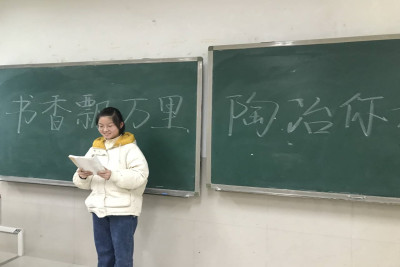 书香飘万里 陶冶你